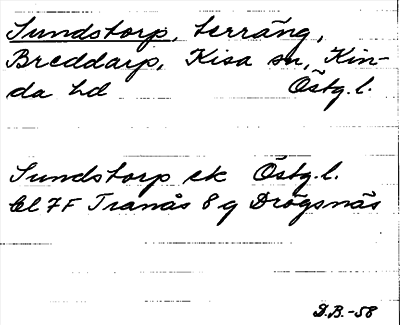 Sundstorp, terräng,
Breddarp, Kisa sn, Kin-
da hd Östg.l.
Sundstorp ek Östg.l.
bl 7F Tranås 8 g Drögsnäs
D.B.-58